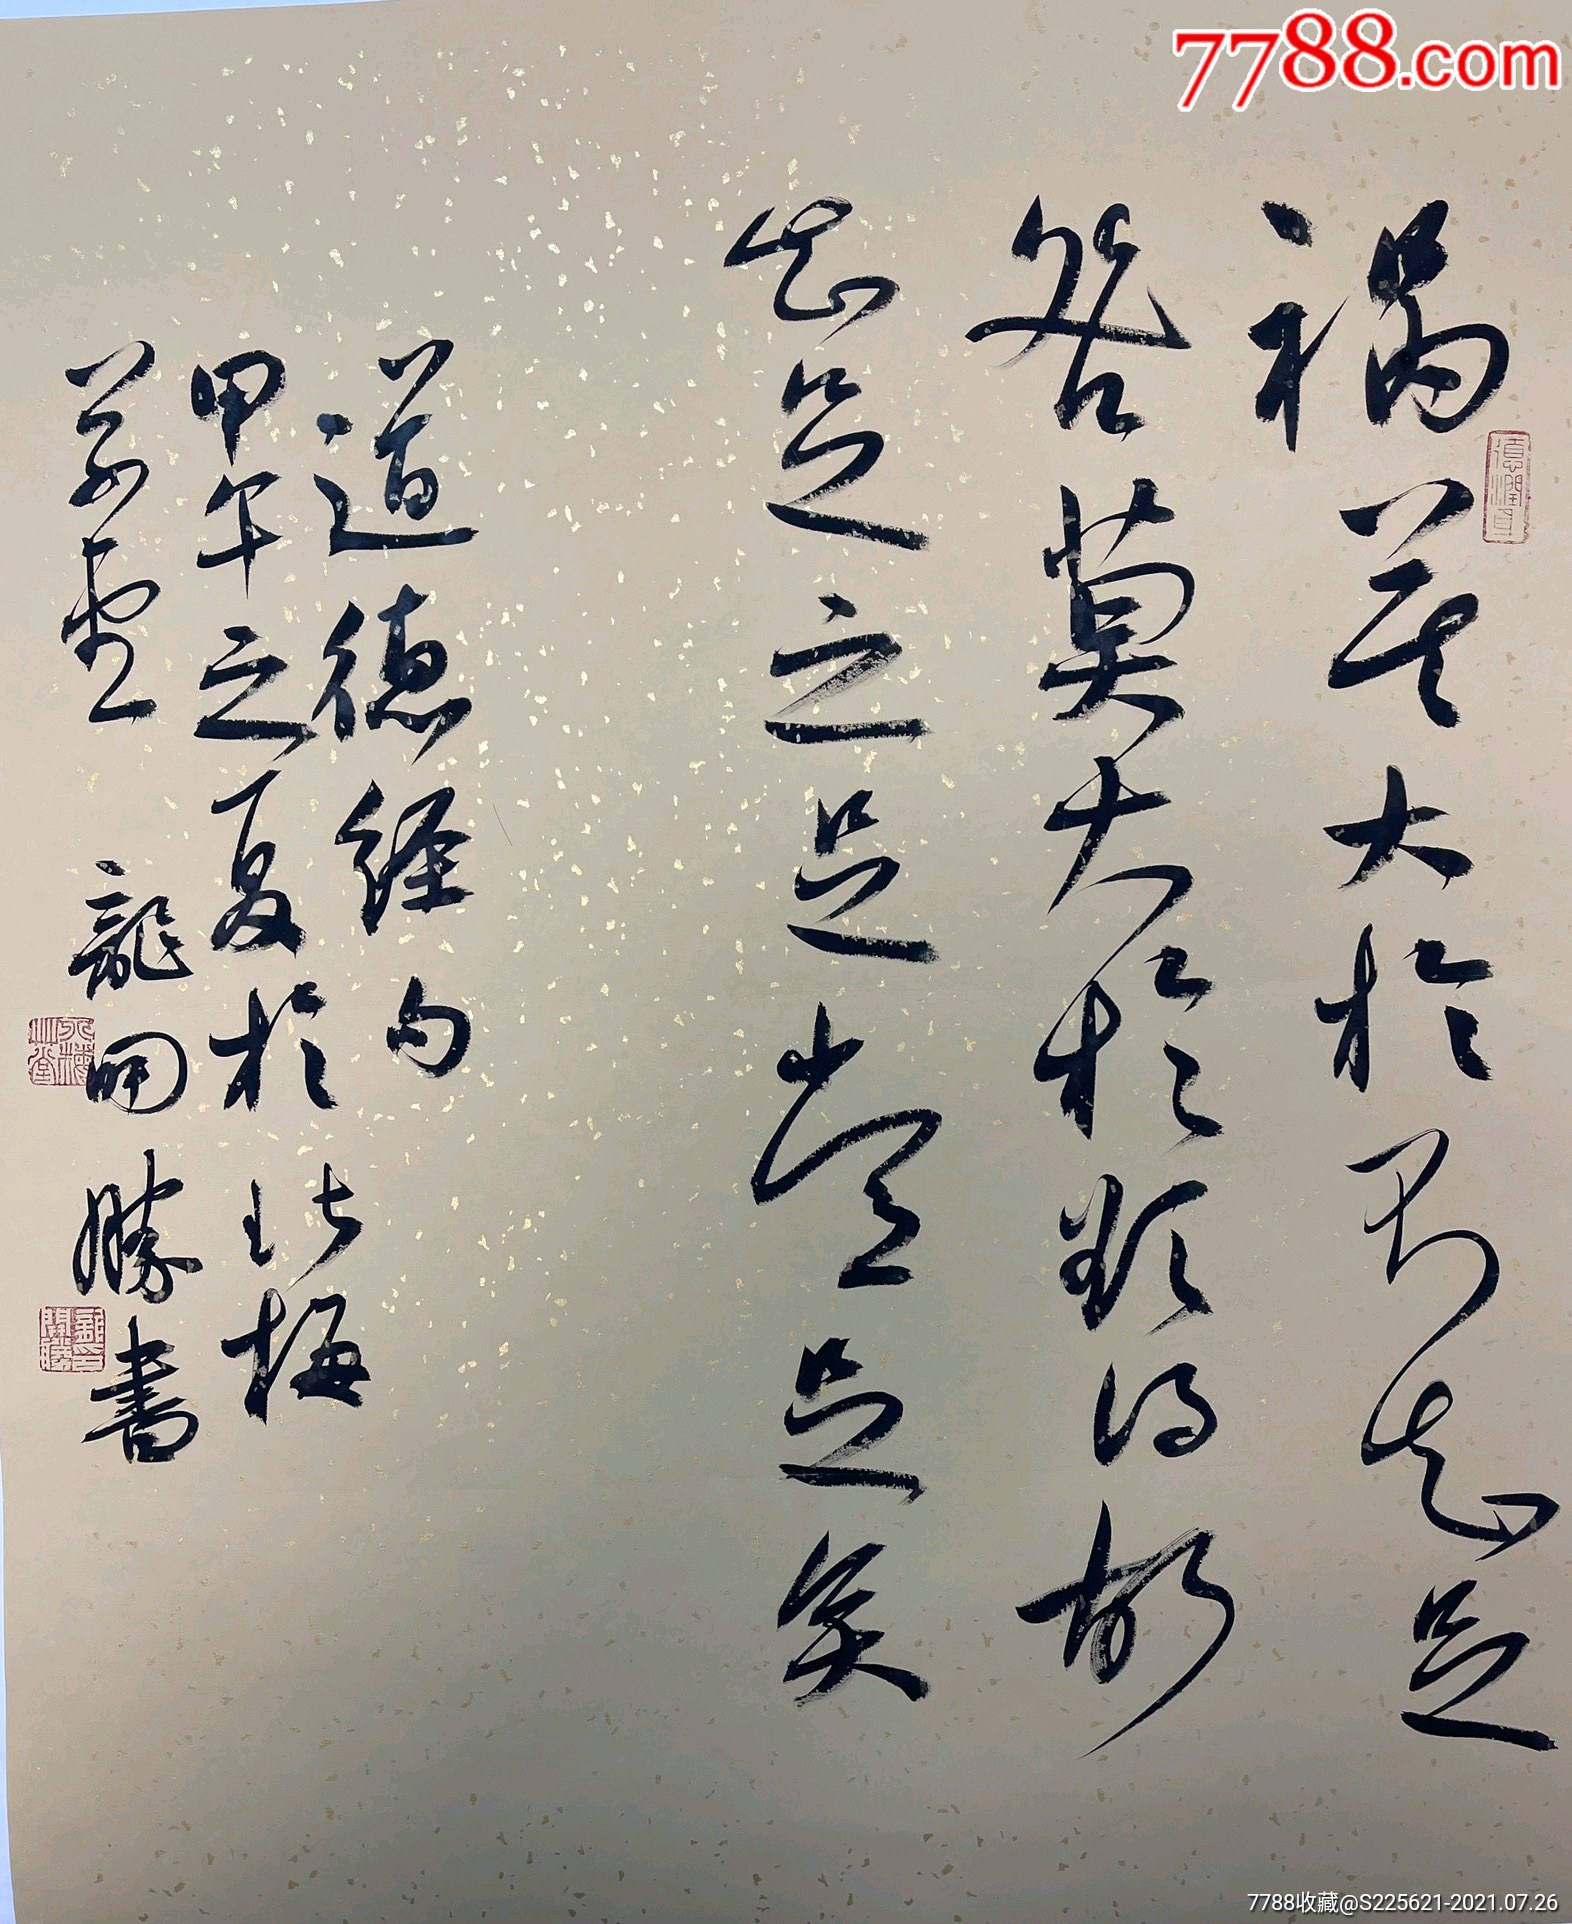 7788.com
禍莫大於不知足
咎莫大於欲得故
知足之足常足矣
道德經句
甲午之夏於北梅
草堂 龍開勝書
德潤身
7788收藏@S225621-2021.07.26